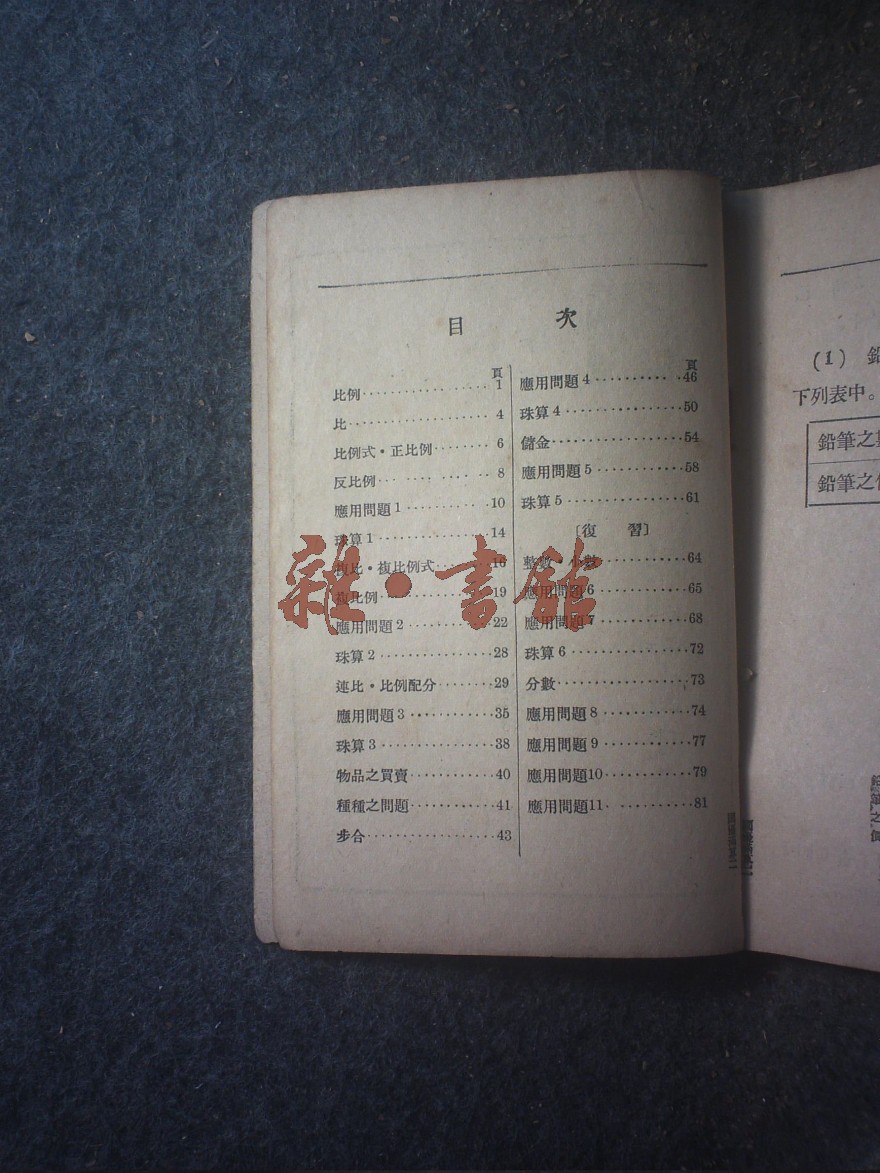 目 次
頁
比例 1
比 4
比例式・正比例 6
反比例 8
應用問題1 10
珠算1 14
複比・複比例式 16
複比例 19
應用問題2 22
珠算2 28
連比・比例配分 29
應用問題3 35
珠算3 38
物品之買賣 40
種種之問題 41
步合 43
頁
應用問題4 46
珠算4 50
儲金 54
應用問題5 58
珠算5 61
〔復 習〕
整數・小數 64
應用問題6 65
應用問題7 68
珠算6 72
分數 73
應用問題8 74
應用問題9 77
應用問題10 79
應用問題11 81
雜・書館
(1) 鉛
下列表中。
鉛筆之
鉛筆之
鉛筆之價